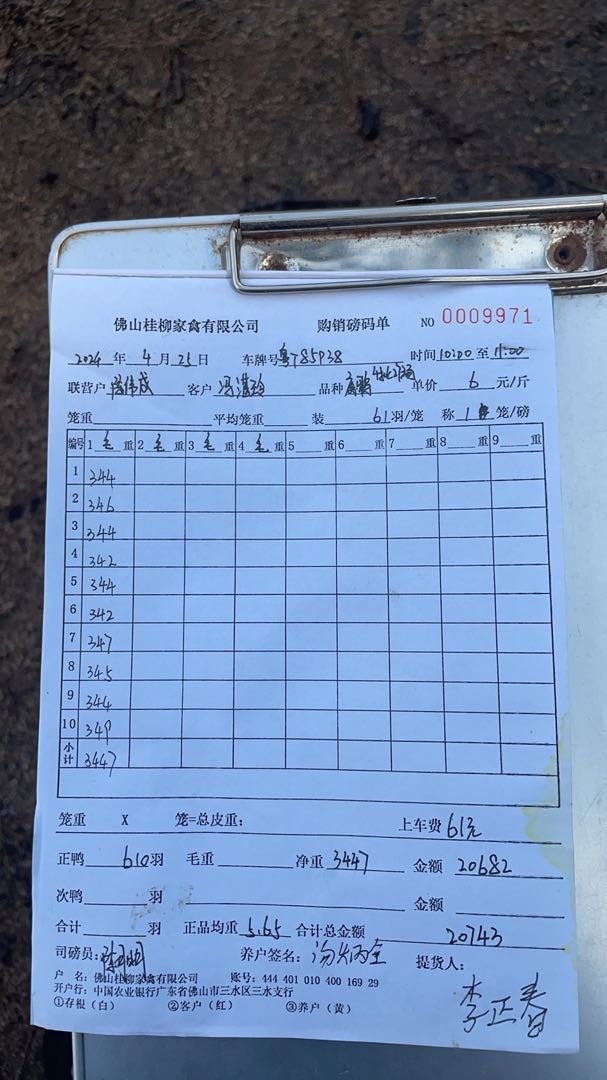 佛山桂柳家禽有限公司 购销磅码单 NO 0009971
2024 年 4 月 25 日 车牌号 粤T85P38 时间 10:00 至 11:00
联营户 客户 品种 单价 6 元/斤
笼重 平均笼重 装 61 羽/笼 称 1 笼/磅
编号 1 毛 重 2 毛 重 3 毛 重 4 毛 重 5 重 6 重 7 重 8 重 9 重
1 344
2 346
3 344
4 342
5 344
6 342
7 347
8 345
9 344
10 349
小计 3447
笼重 X 笼=总皮重: 上车费 61元
正鸭 610 羽 毛重 净重 3447 金额 20682
次鸭 羽 金额
合计 羽 正品均重 5.65 合计总金额 20743
司磅员: 养户签名: 提货人:
李正春
户 名: 佛山桂柳家禽有限公司 账号: 444 401 010 400 169 29
开户行: 中国农业银行广东省佛山市三水区三水支行
①存根（白） ②客户（红） ③养户（黄）